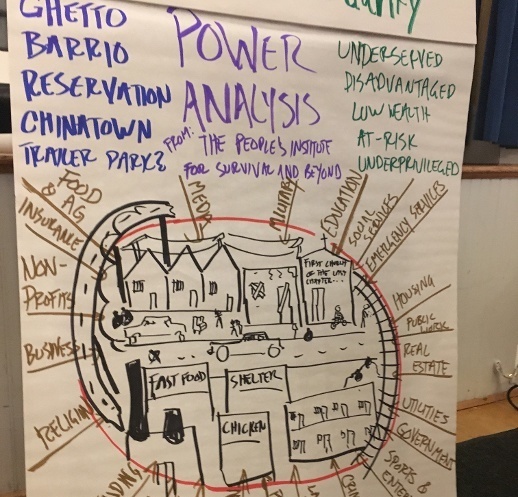 GHETTO
BARRIO
RESERVATION
CHINATOWN
TRAILER PARKS
POWER
ANALYSIS
FROM: THE PEOPLE'S INSTITUTE
FOR SURVIVAL AND BEYOND
UNDERSERVED
DISADVANTAGED
LOW WEALTH
AT-RISK
UNDERPRIVILEGED
FOOD
& AG
INSURANCE
NON-
PROFITS
BUSINESS
RELIGION
MEDIA
MILITARY
EDUCATION
SOCIAL
SERVICES
EMERGENCY SERVICES
HOUSING
PUBLIC WORKS
REAL
ESTATE
UTILITIES
GOVERNMENT
SPORTS &
FIRST CHURCH
OF THE LAST
CHAPTER...
FAST FOOD
SHELTER
CHICKEN